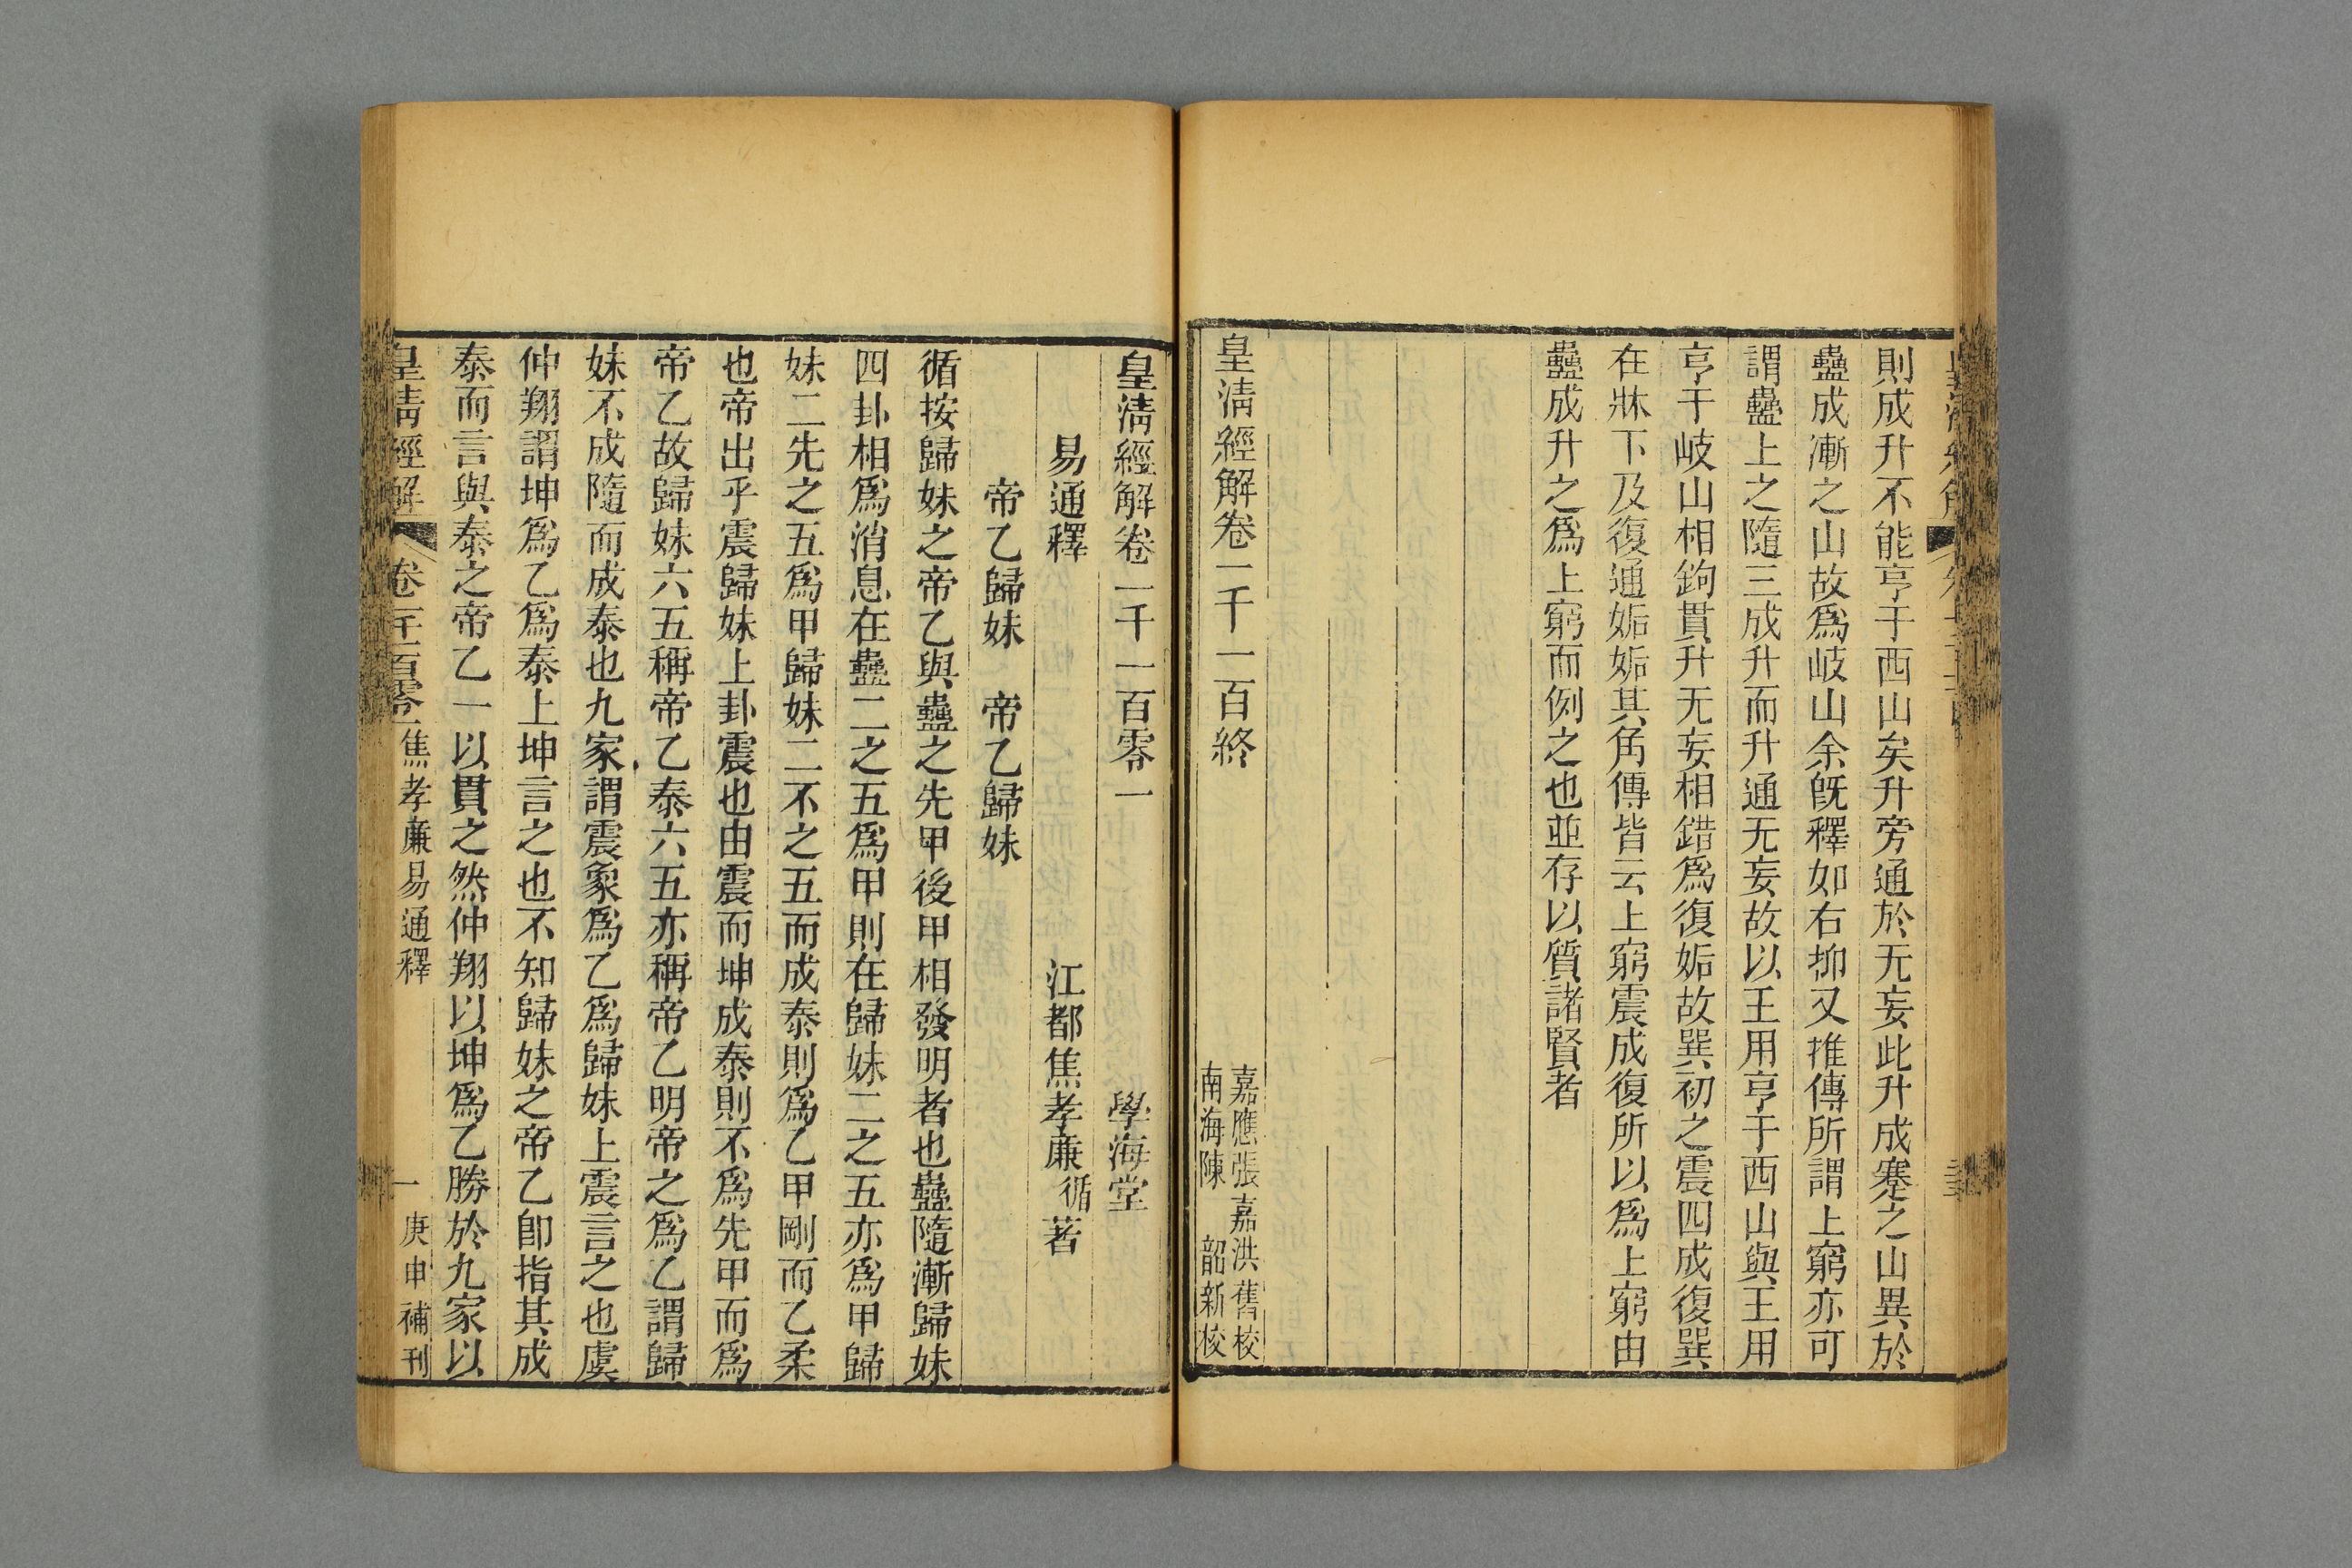 則成升不能亨于西山矣升旁通於无妄此升成蹇之山異於
蠱成漸之山故爲岐山余旣釋如右抑又推傳所謂上窮亦可
謂蠱上之隨三成升而升通无妄故以王用亨于西山與王用
亨于岐山相鉤貫升无妄相錯爲復姤故巽初之震四成復巽
在牀下及復通姤姤其角傳皆云上窮震成復所以爲上窮由
蠱成升之爲上窮而例之也並存以質諸賢者
皇淸經解卷一千一百終
嘉應張嘉洪舊校
南海陳 韶新校
皇淸經解卷一千一百零一
學海堂
易通釋
江都焦孝廉循著
帝乙歸妹 帝乙歸妹
循按歸妹之帝乙與蠱之先甲後甲相發明者也蠱隨漸歸妹
四卦相爲消息在蠱二之五爲甲則在歸妹二之五亦爲甲歸
妹二先之五爲甲歸妹二不之五而成泰則爲乙甲剛而乙柔
也帝出乎震歸妹上卦震也由震而坤成泰則不爲先甲而爲
帝乙故歸妹六五稱帝乙泰六五亦稱帝乙明帝之爲乙謂歸
妹不成隨而成泰也九家謂震象爲乙爲歸妹上震言之也虞
仲翔謂坤爲乙爲泰上坤言之也不知歸妹之帝乙卽指其成
泰而言與泰之帝乙一以貫之然仲翔以坤爲乙勝於九家以
皇淸經解 卷一千一百零一 焦孝廉易通釋 一 庚申補刊